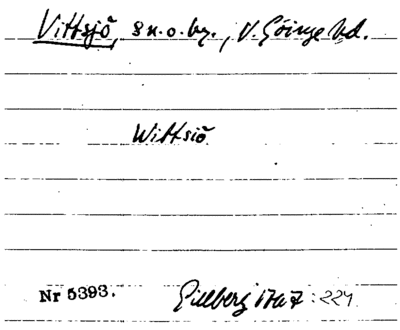 Vittsjö, sn. o. by., V. Göinge hd.
Wittsiö
Nr 5393.
Gillberg 1767: 224